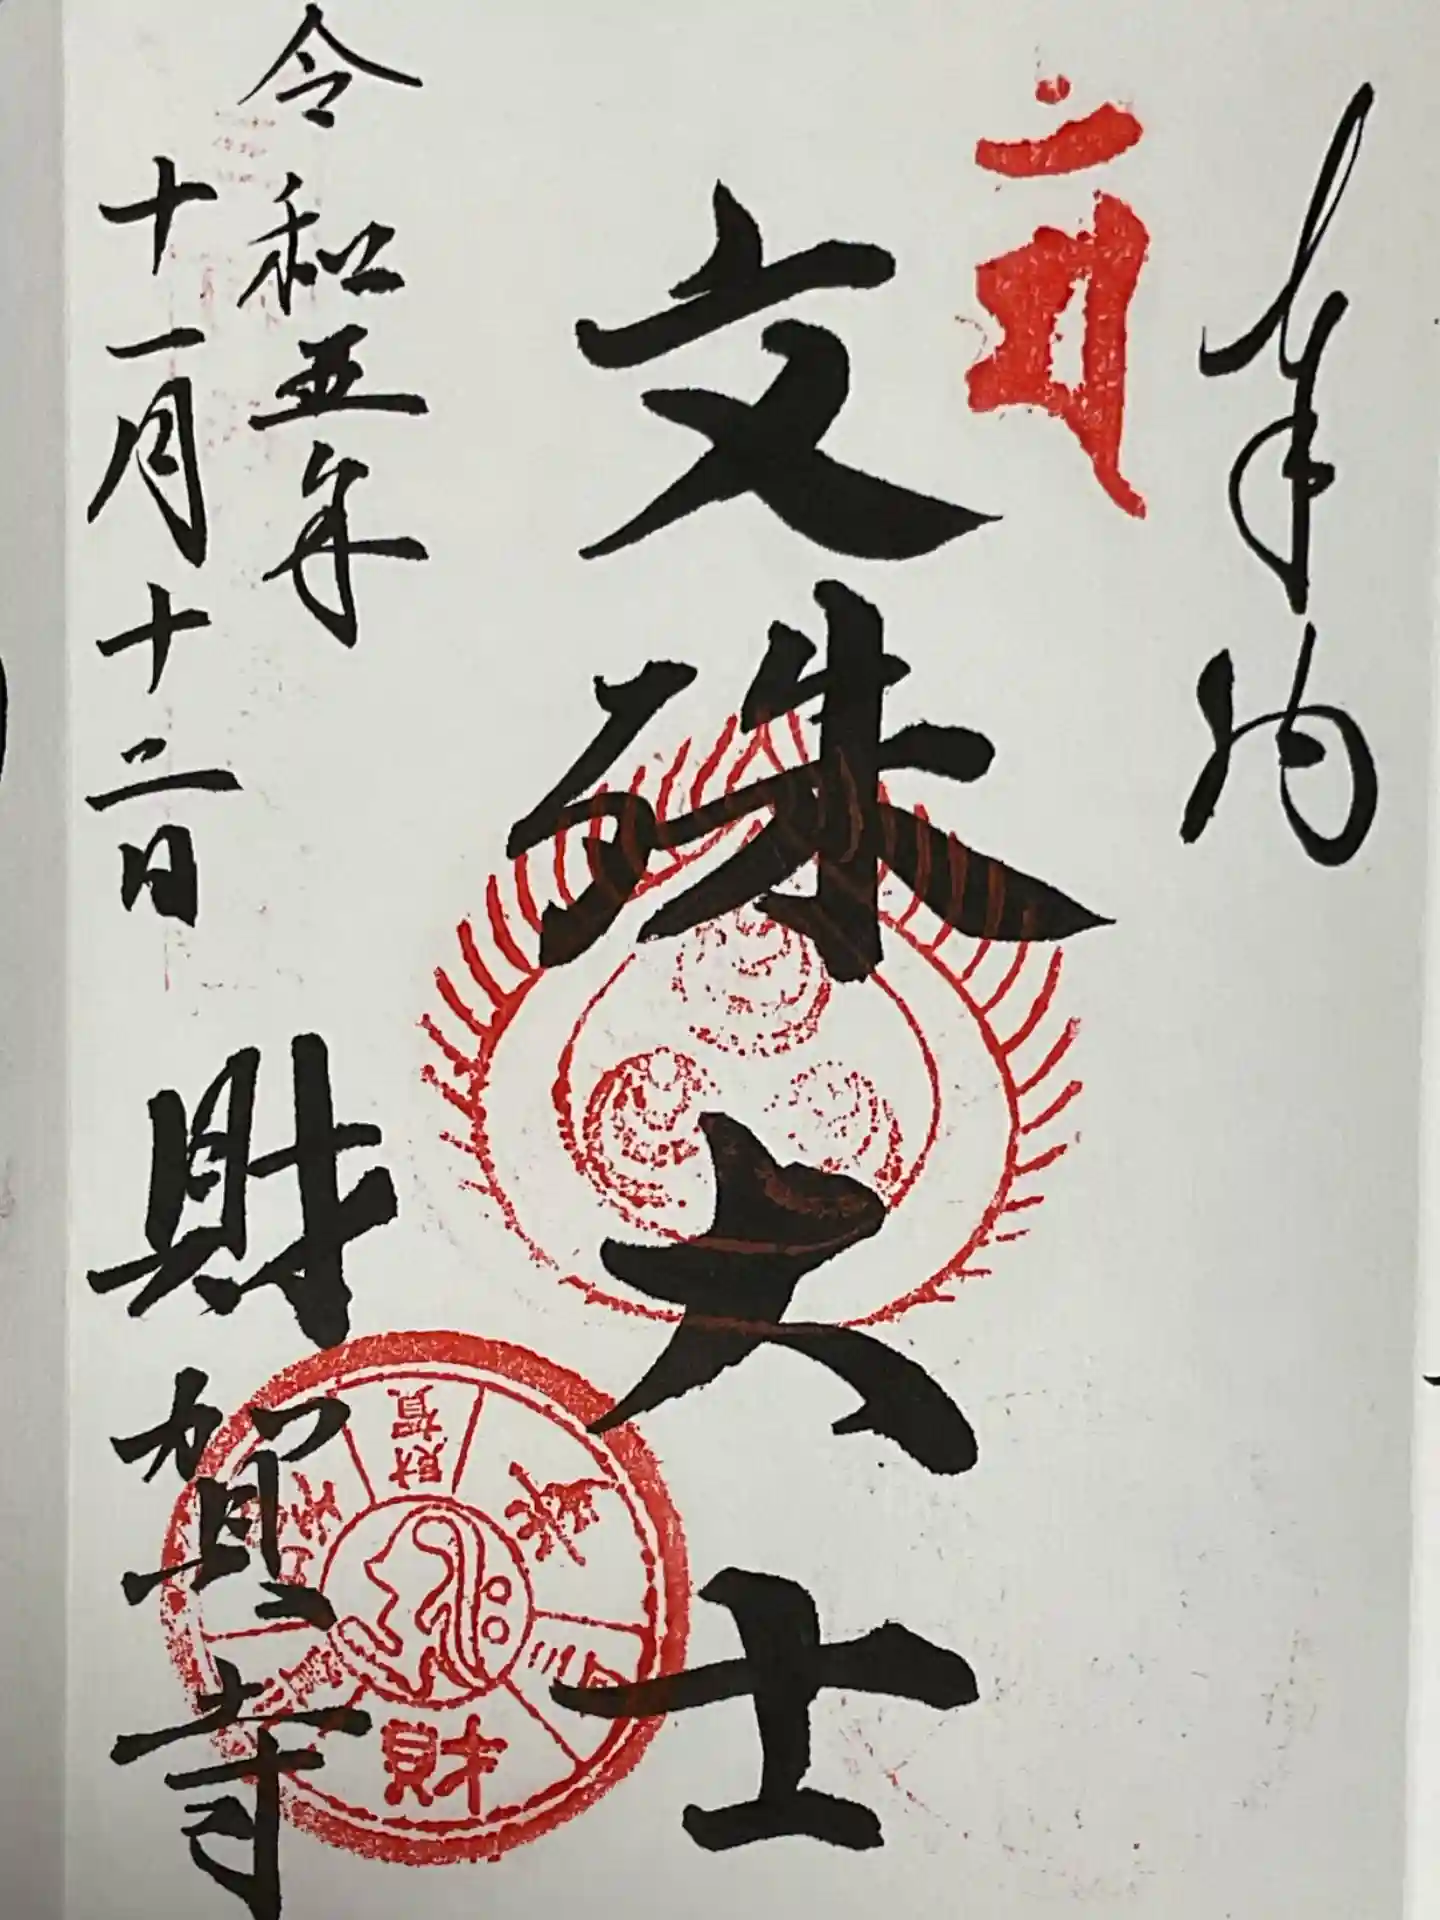 奉納
文殊大士
令和五年
十一月十二日
財賀寺
財賀
財